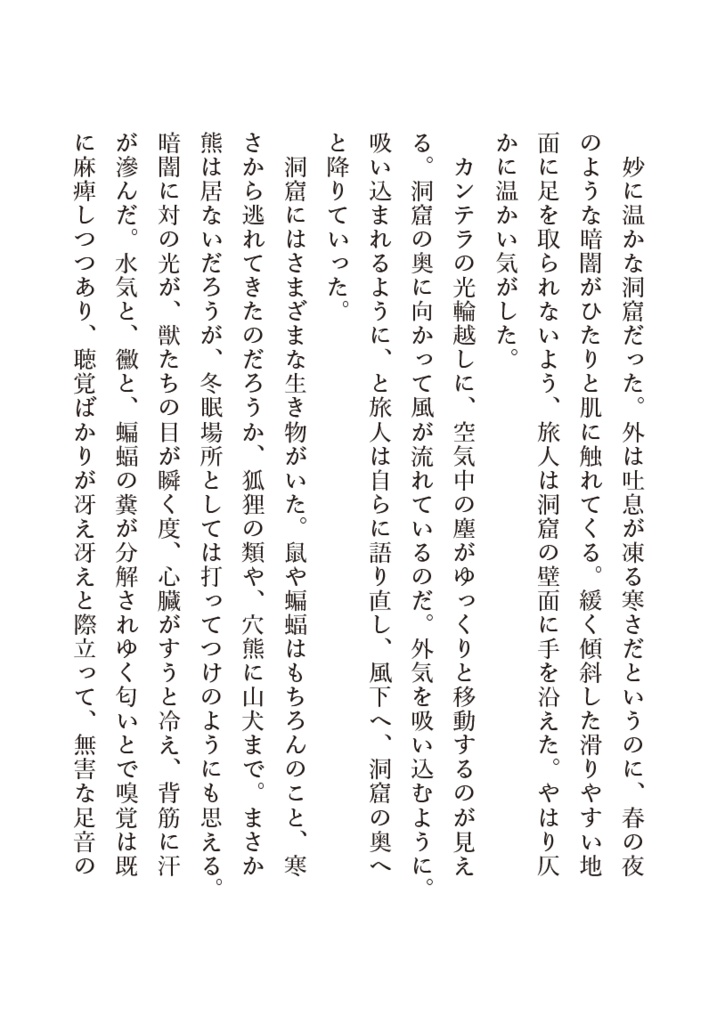 妙に温かな洞窟だった。外は吐息が凍る寒さだというのに、春の夜
のような暗闇がひたりと肌に触れてくる。緩く傾斜した滑りやすい地
面に足を取られないよう、旅人は洞窟の壁面に手を沿えた。やはり仄
かに温かい気がした。
　カンテラの光輪越しに、空気中の塵がゆっくりと移動するのが見え
る。洞窟の奥に向かって風が流れているのだ。外気を吸い込むように。
吸い込まれるように、と旅人は自らに語り直し、風下へ、洞窟の奥へ
と降りていった。
　洞窟にはさまざまな生き物がいた。鼠や蝙蝠はもちろんのこと、寒
さから逃れてきたのだろうか、狐狸の類や、穴熊に山犬まで。まさか
熊は居ないだろうが、冬眠場所としては打ってつけのようにも思える。
暗闇に対の光が、獣たちの目が瞬く度、心臓がすうと冷え、背筋に汗
が滲んだ。水気と、黴と、蝙蝠の糞が分解されゆく匂いとで嗅覚は既
に麻痺しつつあり、聴覚ばかりが冴え冴えと際立って、無害な足音の